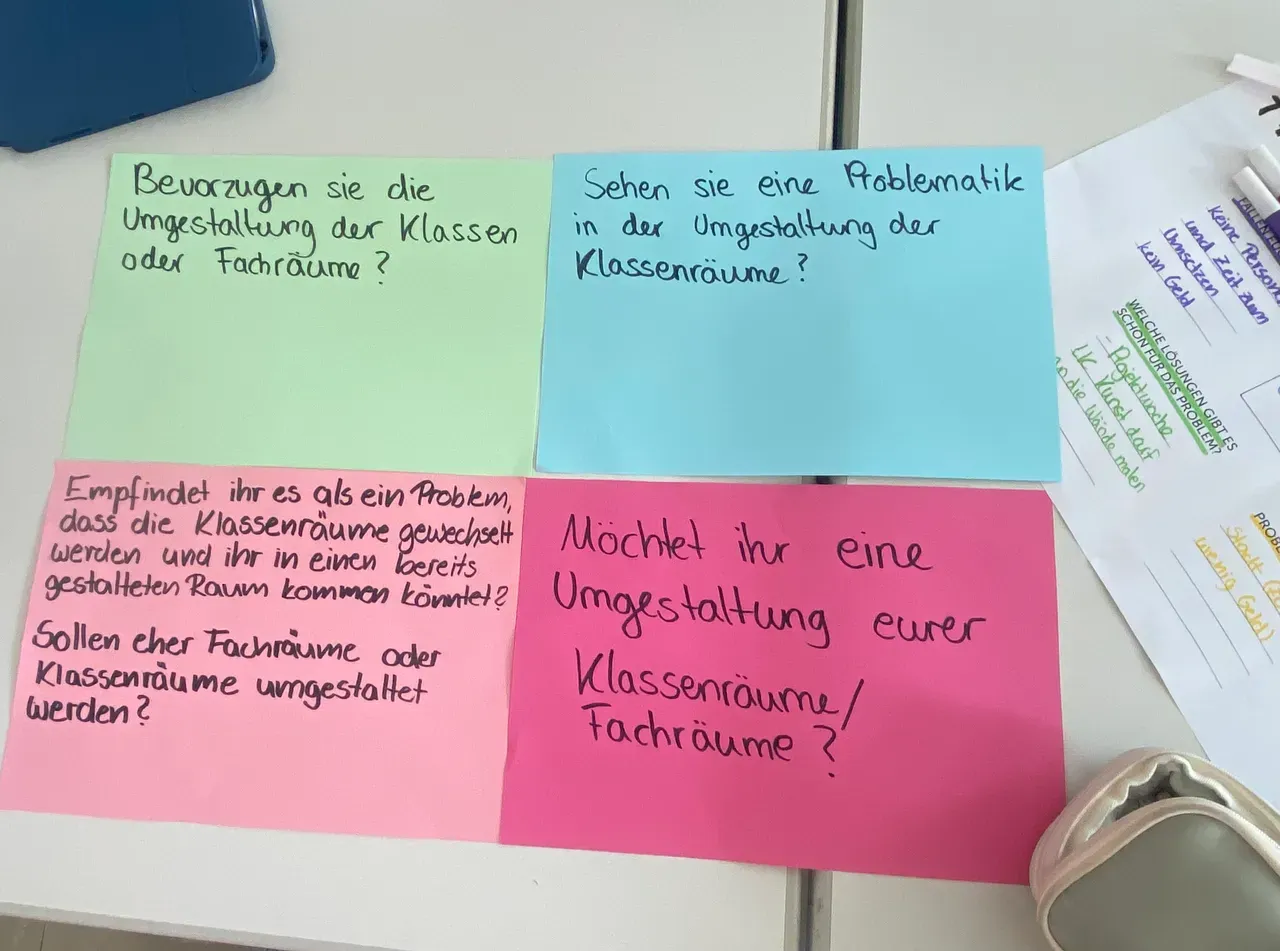 Bevorzugen sie die
Umgestaltung der Klassen
oder Fachräume?
Sehen sie eine Problematik
in der Umgestaltung der
Klassenräume?
Empfindet ihr es als ein Problem,
dass die Klassenräume gewechselt
werden und ihr in einen bereits
gestalteten Raum kommen könntet?
Sollen eher Fachräume oder
Klassenräume umgestaltet
werden?
Möchtet ihr eine
Umgestaltung eurer
Klassenräume/
Fachräume?
keine Person
und Zeit zum
Umsetzen
kein Geld
WELCHE LÖSUNGEN GIBT ES
SCHON FÜR DAS PROBLEM?
- Projektwoche
LK Kunst darf
an die Wände malen
Stadt
wenig Geld)